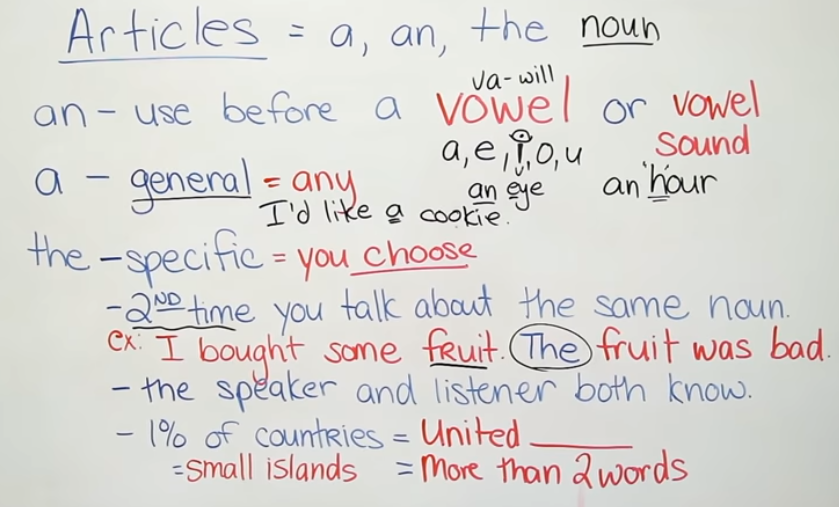 Articles = a, an, the noun
va-will
an - use before a vowel or vowel
a, e, i, o, u sound
a - general = any an eye an hour
I'd like a cookie.
the - specific = you choose
- 2ND time you talk about the same noun.
ex: I bought some fruit. The fruit was bad.
- the speaker and listener both know.
- 1% of countries = United ______
= small islands = more than 2 words